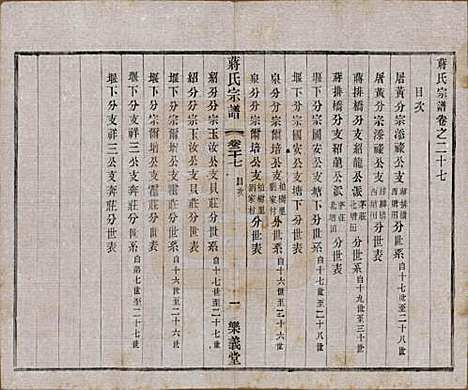 蔣氏宗譜卷之二十七
目次
屠黃分宗添祿公支 蔣橋田 西塘田 分世系 自十八世至二十八世
屠黃分宗添祿公支 西塘田 分世表
蔣排橋分支紹龍公派 茅莊 北塘田 分世系 自十九世至三十世
蔣排橋分支紹龍公派 茅莊 北塘田 分世表
堰下分宗國安公支塘下分世系 自十七世至二十八世
堰下分宗國安公支塘下分世表
泉分分宗爾培公支 柏樹里 劉家村 分世系 自十六世至二十八世
泉分分宗爾培公支 柏樹里 劉家村 分世表
蔣氏宗譜 卷二十七 目次 一 樂義堂
紹分分宗玉汝公支貝莊分世系 自十七世至二十七世
紹分分宗玉汝公支貝莊分世表
堰下分支祥三公支奔莊分世系 自十六世至二十六世
堰下分支祥三公支奔莊分世表